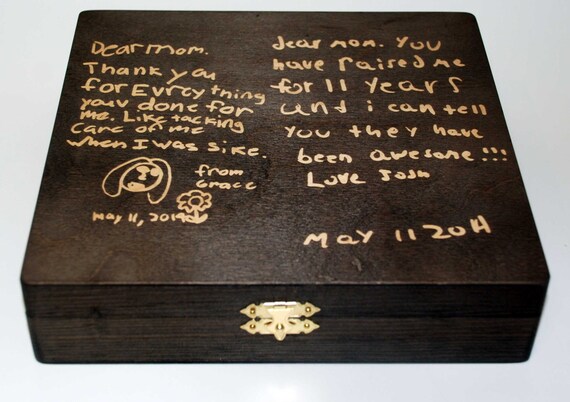 Dear mom.
Thank you
for Evrcything
youv done for
me. Like tacking
care of me
when I was sike.
from
Grace
may 11, 2014
dear mom. you
have raised me
for 11 years
and i can tell
you they have
been awesome!!!
Love Josh
May 11 2014